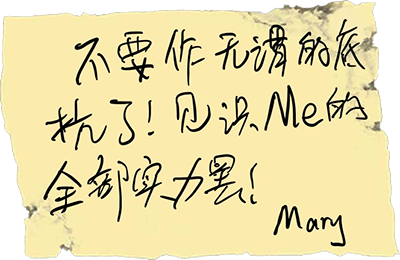 不要作无谓的底
抗了！见识Me的
全部实力罢！
Mary